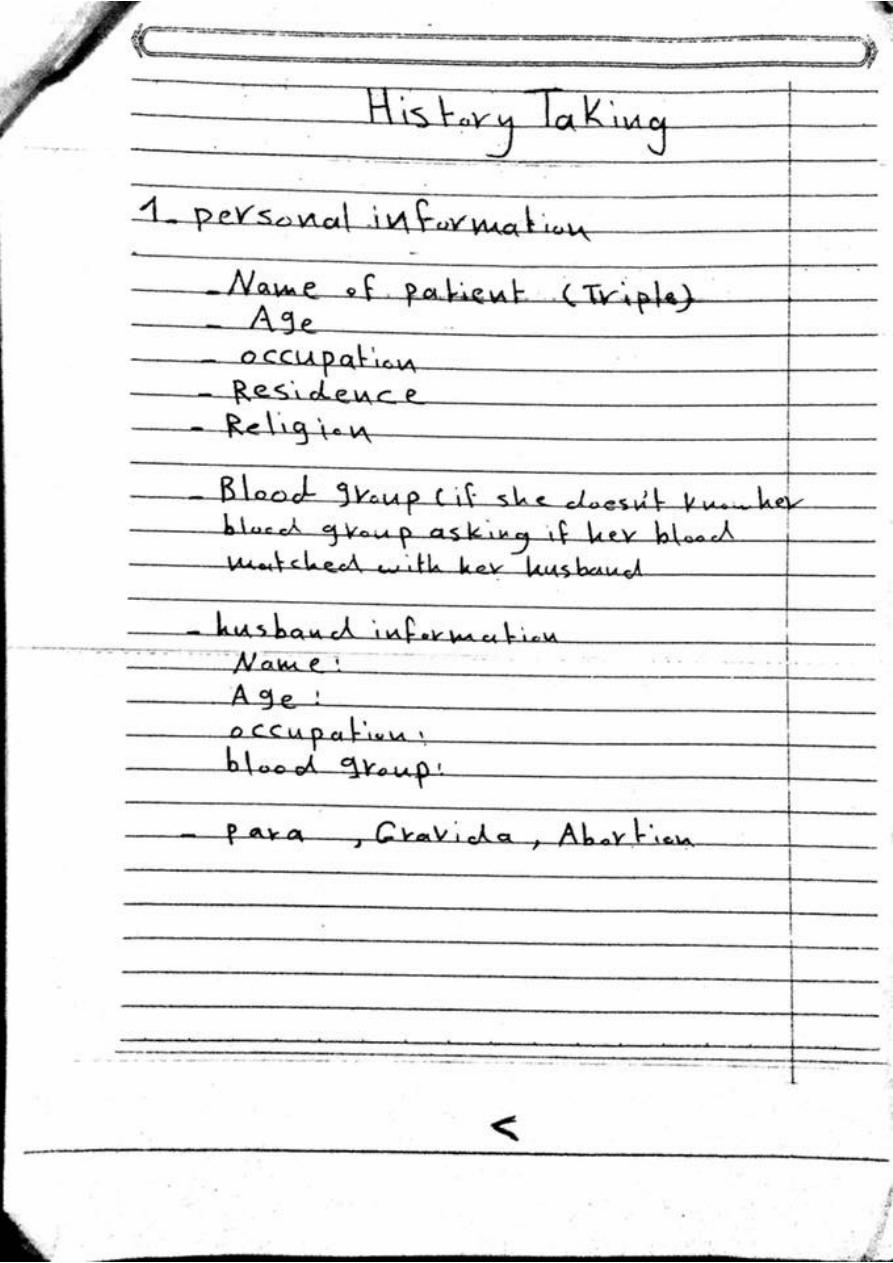 History Taking
1- personal information
- Name of patient (Triple)
- Age
- occupation
- Residence
- Religion
- Blood group (if she doesn't know her
blood group asking if her blood
matched with her husband
- husband information
Name:
Age:
occupation:
blood group:
- para , Gravida, Abortion
<